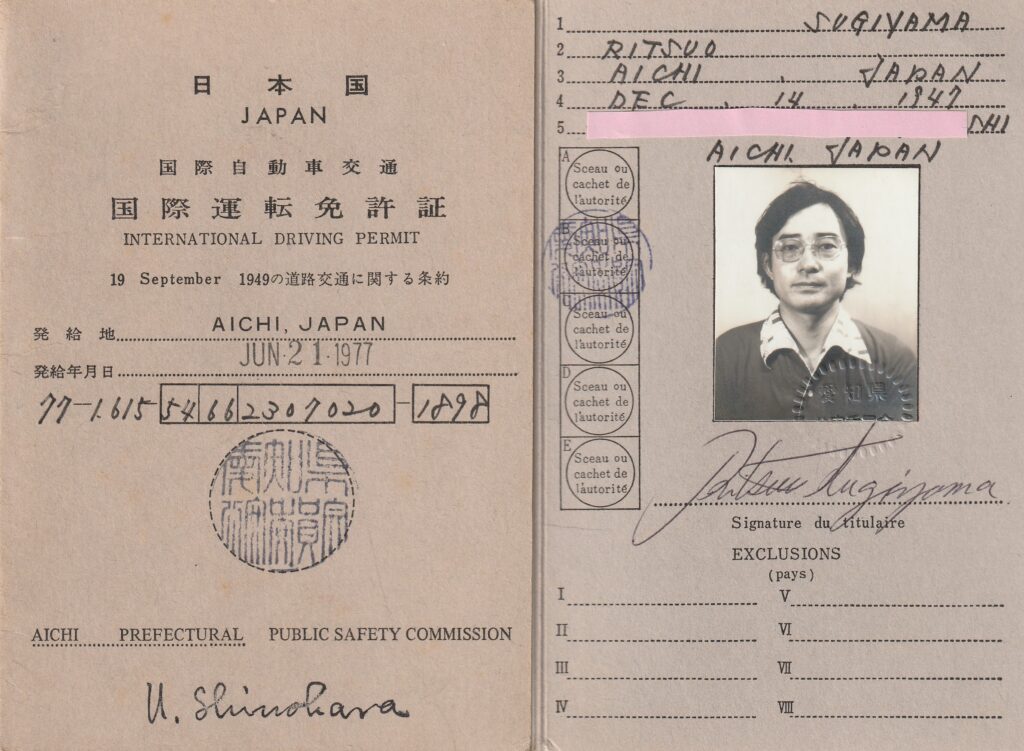 日本国
JAPAN
国際自動車交通
国際運転免許証
INTERNATIONAL DRIVING PERMIT
19 September 1949の道路交通に関する条約
発給地 AICHI, JAPAN
発給年月日 JUN·21·1977
77-1.615 54 66 2307020-1898
AICHI PREFECTURAL PUBLIC SAFETY COMMISSION
U. Shinohara
1 SUGIYAMA
2 RITSUO
3 AICHI, JAPAN
4 DEC. 14. 1947
5 SHI
AICHI JAPAN
A
Sceau ou
cachet de
l'autorité
B
Sceau ou
cachet de
l'autorité
C
Sceau ou
cachet de
l'autorité
D
Sceau ou
cachet de
l'autorité
E
Sceau ou
cachet de
l'autorité
愛知県
Ritsuo Sugiyama
Signature du titulaire
EXCLUSIONS
(pays)
I V
II VI
III VII
IV VIII